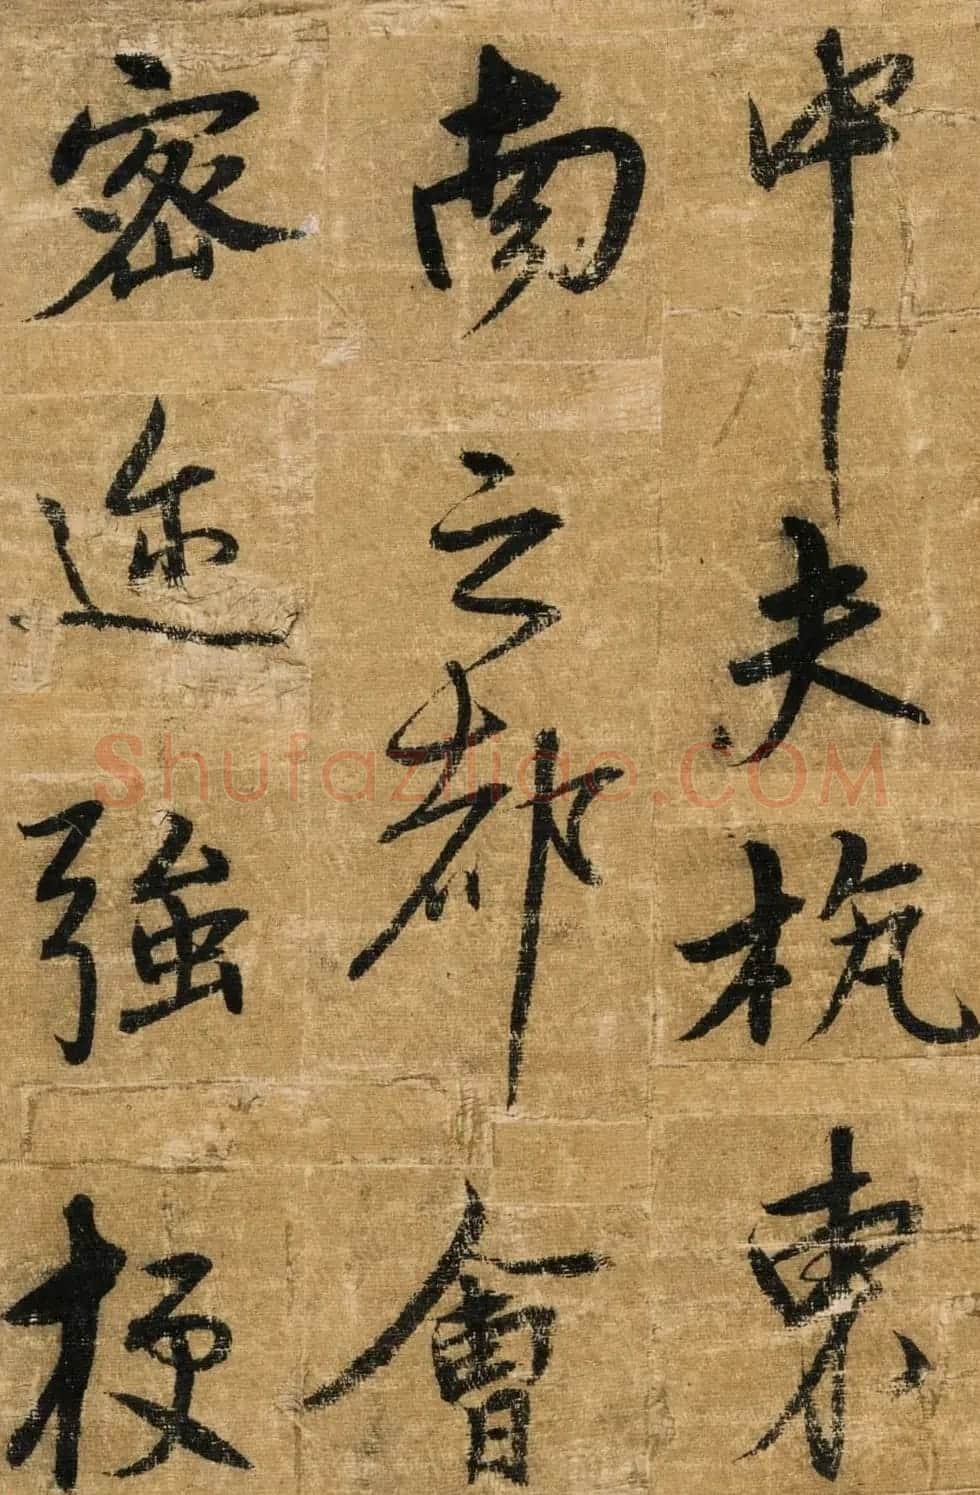 中夫杭東
南之都會
密迩強梗
Shufaziliao.COM